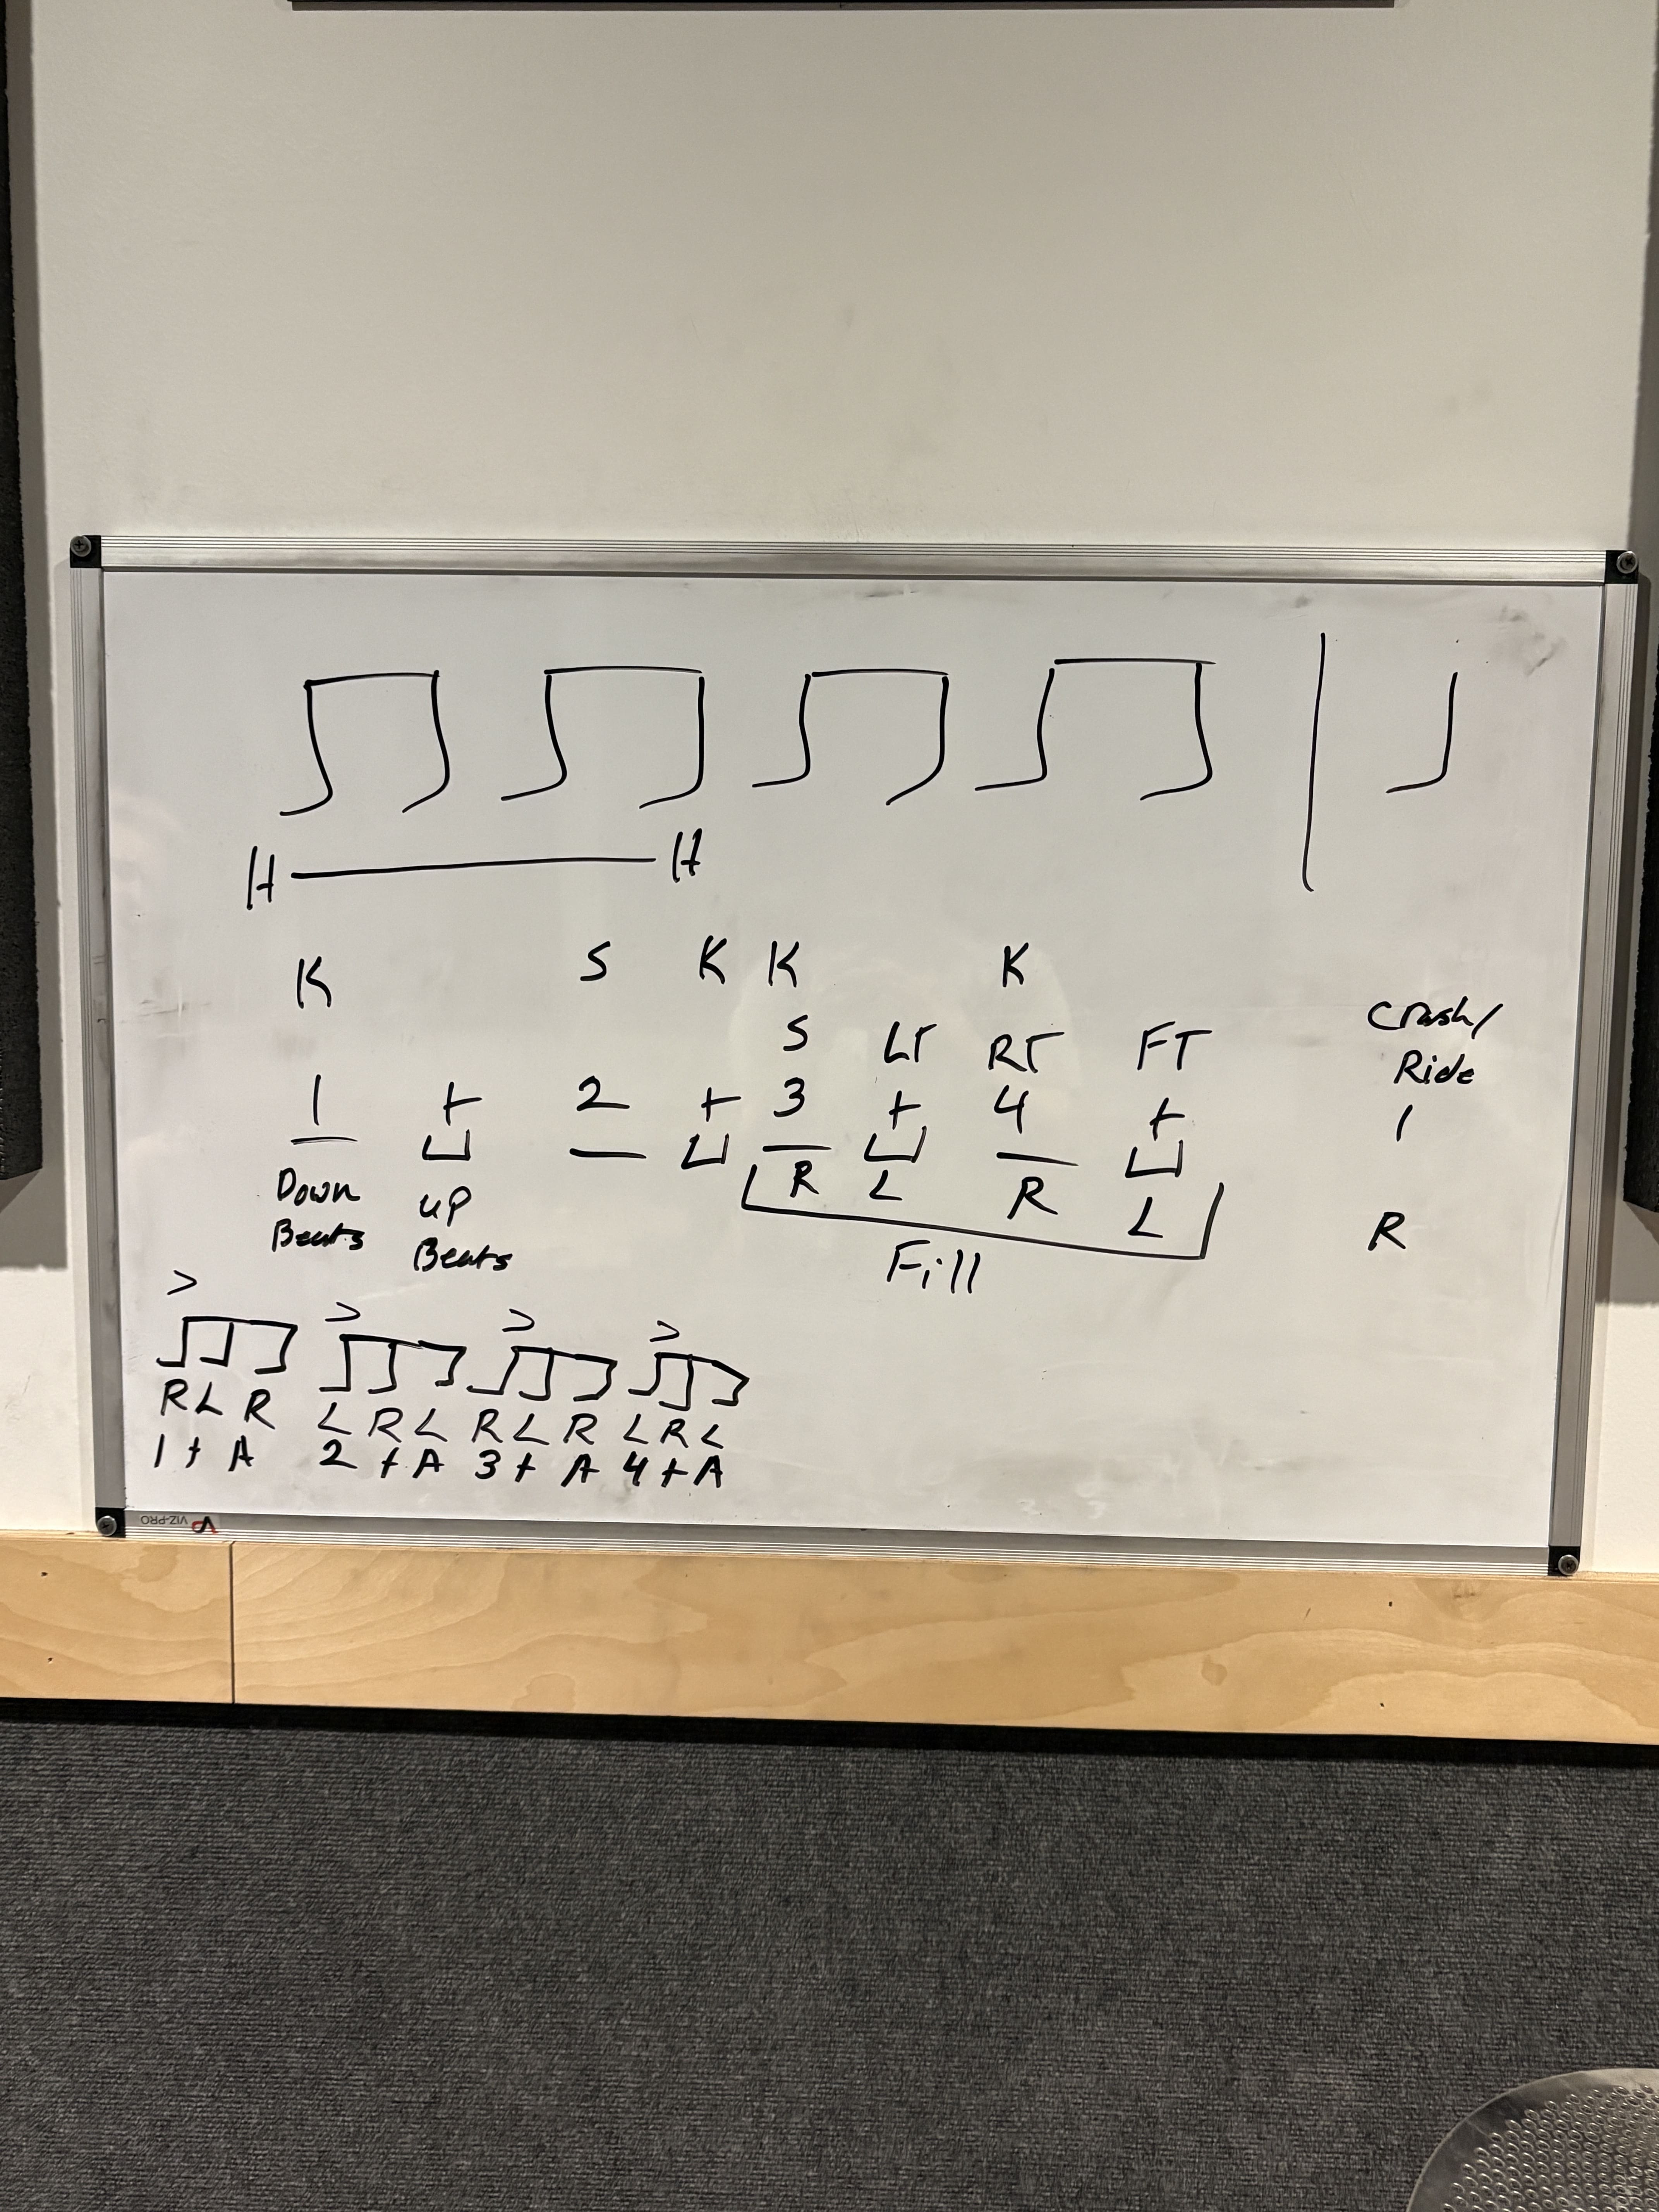 H H
K S K K K
S LT RT FT Crash/
Ride
1 + 2 + 3 + 4 + 1
R L R L R
Down
Beats
up
Beats
Fill
> > > >
R L R L R L R L R L R L
1 + A 2 + A 3 + A 4 + A
VIZ-PRO